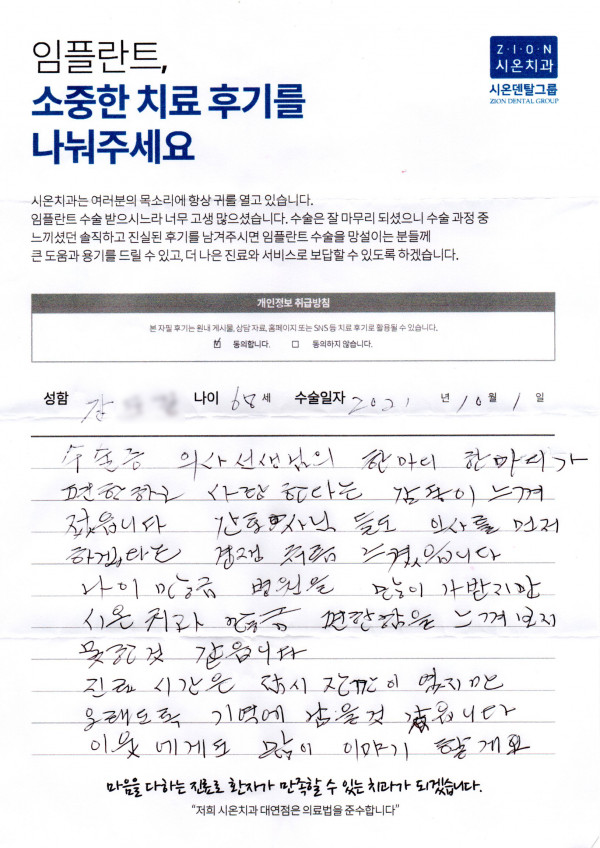 임플란트,
소중한 치료 후기를
나눠주세요
Z·I·O·N
시온치과
시온덴탈그룹
ZION DENTAL GROUP
시온치과는 여러분의 목소리에 항상 귀를 열고 있습니다.
임플란트 수술 받으시느라 너무 고생 많으셨습니다. 수술은 잘 마무리 되셨으니 수술 과정 중
느끼셨던 솔직하고 진실된 후기를 남겨주시면 임플란트 수술을 망설이는 분들께
큰 도움과 용기를 드릴 수 있고, 더 나은 진료와 서비스로 보답할 수 있도록 하겠습니다.
개인정보 취급방침
본 자필 후기는 원내 게시물, 상담 자료, 홈페이지 또는 SNS 등 치료 후기로 활용될 수 있습니다.
☑ 동의합니다. □ 동의하지 않습니다.
성함 나이 68세 수술일자 2021 년 10월 1일
수술중 의사선생님의 한마디 한마디가
편한하고 사랑 한다는 감동이 느껴
젔읍니다 간호사님 들도 인사를 먼저
느꼈읍니다
나이 만큼 병원을 많이 가받지만
시온 치과 만큼 편한함을 느껴보지
못한것 같읍니다
진료 시간은 잠시 잠깐이 였지만
오래도록 기억에 남을것 같읍니다
이웃에게도 많이 이야기 할게요
마음을 다하는 진료로 환자가 만족할 수 있는 치과가 되겠습니다.
“저희 시온치과 대연점은 의료법을 준수합니다”